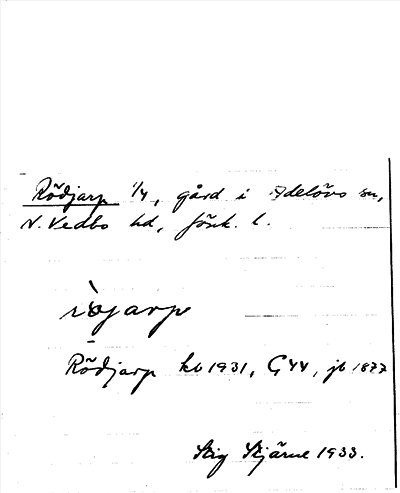 Rödjarp 1/4, gård i Adelövs sn,
N. Vedbo hd, Jönk. l.
rö̀jarp
Rödjarp kb 1931, G44, jb 1877
Stig Stjärne 1933.